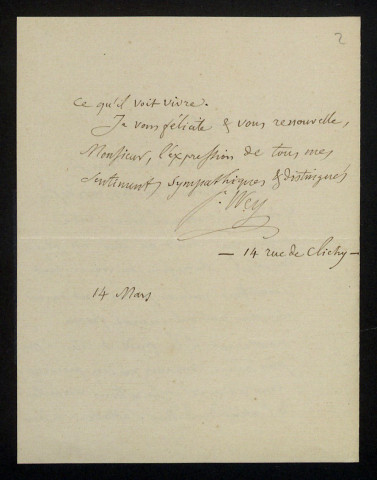 2
ce qu'il voit vivre.
Je vous félicite & vous renouvelle,
Monsieur, l'expression de tous mes
sentiments sympathiques & distingués
F. Wey
— 14 rue de Clichy —
14 Mars